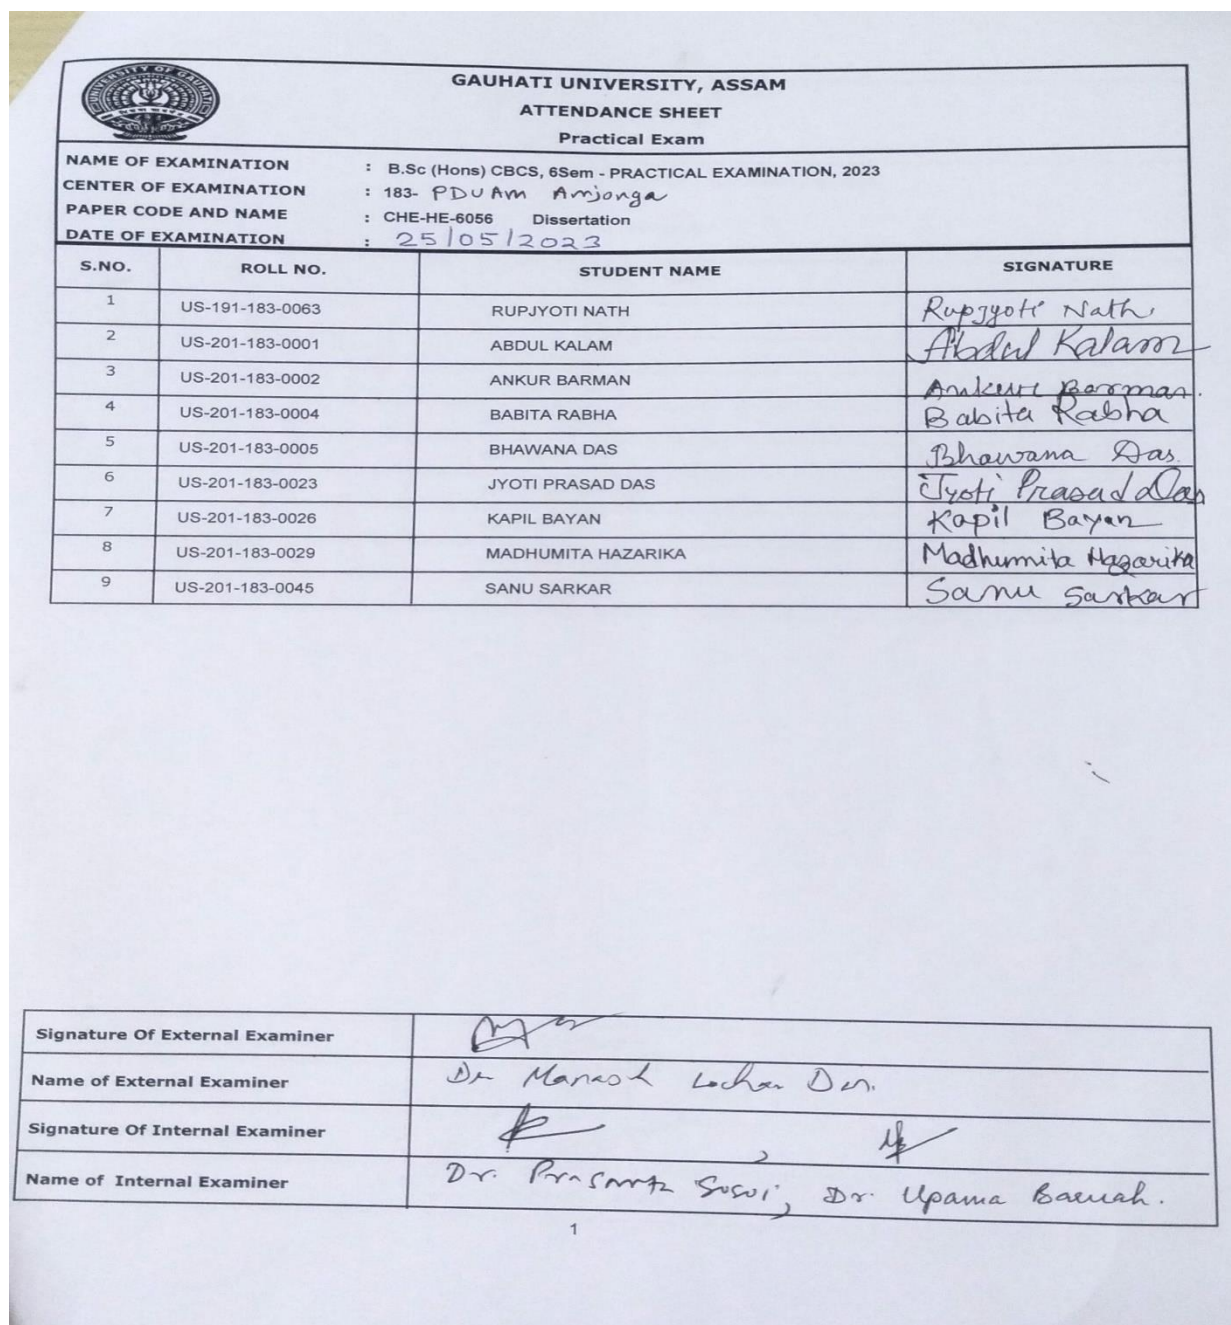 UNIVERSITY OF GAUHATI
GAUHATI UNIVERSITY, ASSAM
ATTENDANCE SHEET
Practical Exam
NAME OF EXAMINATION : B.Sc (Hons) CBCS, 6Sem - PRACTICAL EXAMINATION, 2023
CENTER OF EXAMINATION : 183- PDUAM Amjonga
PAPER CODE AND NAME : CHE-HE-6056 Dissertation
DATE OF EXAMINATION : 25/05/2023
S.NO. ROLL NO. STUDENT NAME SIGNATURE
1 US-191-183-0063 RUPJYOTI NATH Rupjyoti Nath
2 US-201-183-0001 ABDUL KALAM Abdul Kalam
3 US-201-183-0002 ANKUR BARMAN Ankur Barman.
4 US-201-183-0004 BABITA RABHA Babita Rabha
5 US-201-183-0005 BHAWANA DAS Bhawana Das.
6 US-201-183-0023 JYOTI PRASAD DAS Jyoti Prasad Das
7 US-201-183-0026 KAPIL BAYAN Kapil Bayan
8 US-201-183-0029 MADHUMITA HAZARIKA Madhumita Hazarika
9 US-201-183-0045 SANU SARKAR Sanu Sarkar
Signature Of External Examiner
Name of External Examiner Dr Manash Lochan Das.
Signature Of Internal Examiner
Name of Internal Examiner Dr. , Dr. Upama Baruah.
1